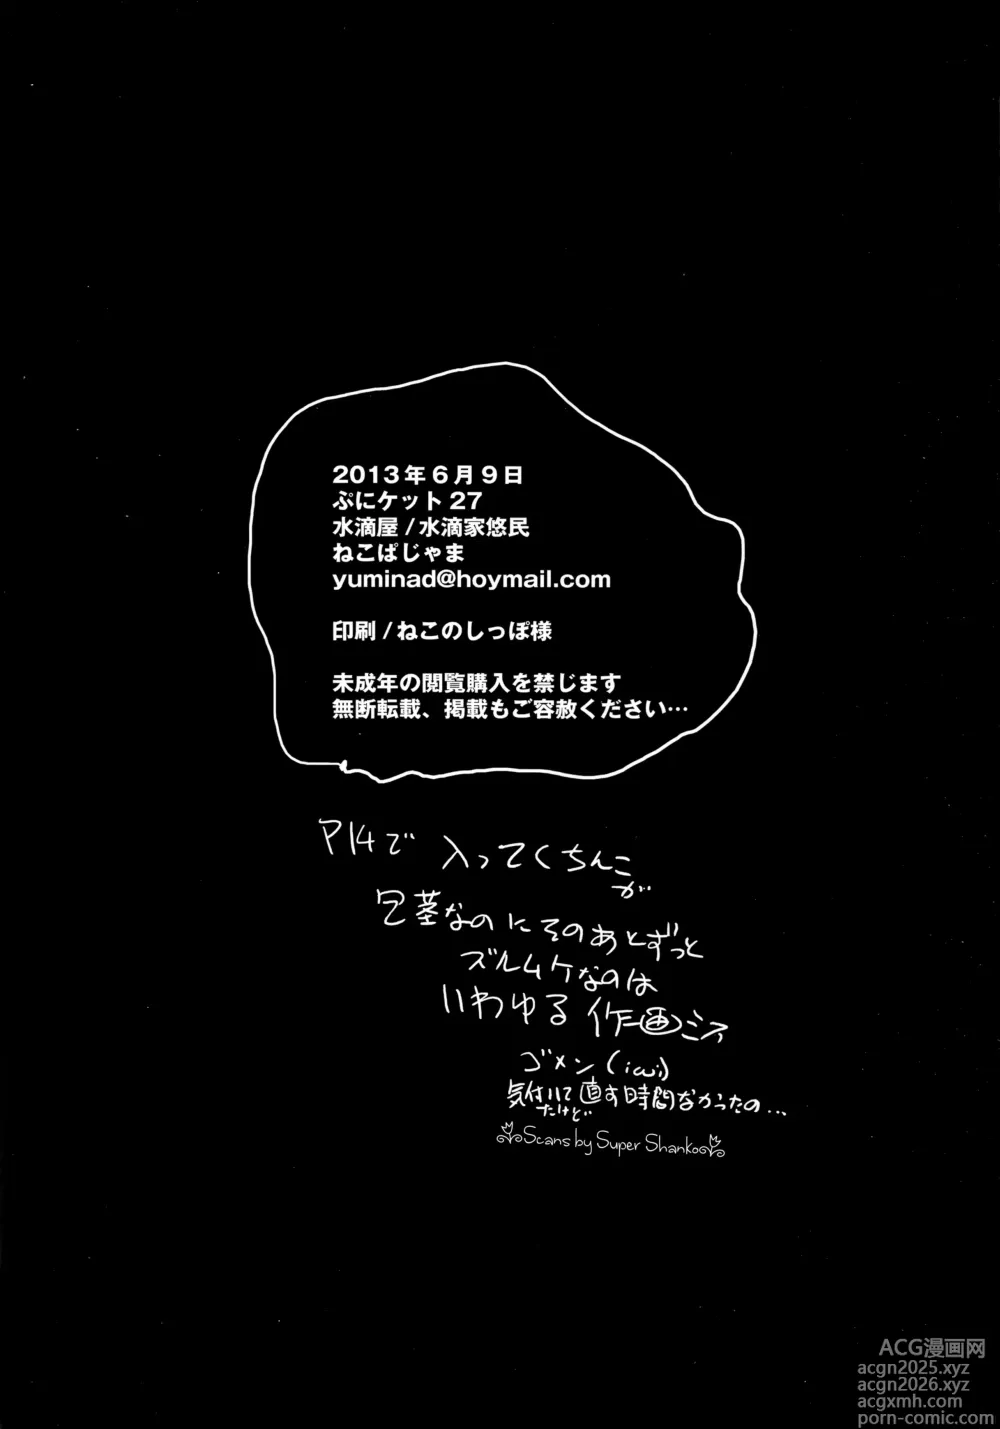 2013年6月9日
ぷにケット27
水滴屋/水滴家悠民
ねこぱじゃま
yuminad@hoymail.com
印刷/ねこのしっぽ様
未成年の閲覧購入を禁じます
無断転載、掲載もご容赦ください…
P14で入ってくちんこが
包茎なのにそのあとずっと
ズルムケなのは
いわゆる作画ミス
ゴメン(;ω;)
気付いて直す時間なかったの...
たけど
Scans by Super Shanko
ACG漫画网
acgn2025.xyz
acgn2026.xyz
acgxmh.com
porn-comic.com